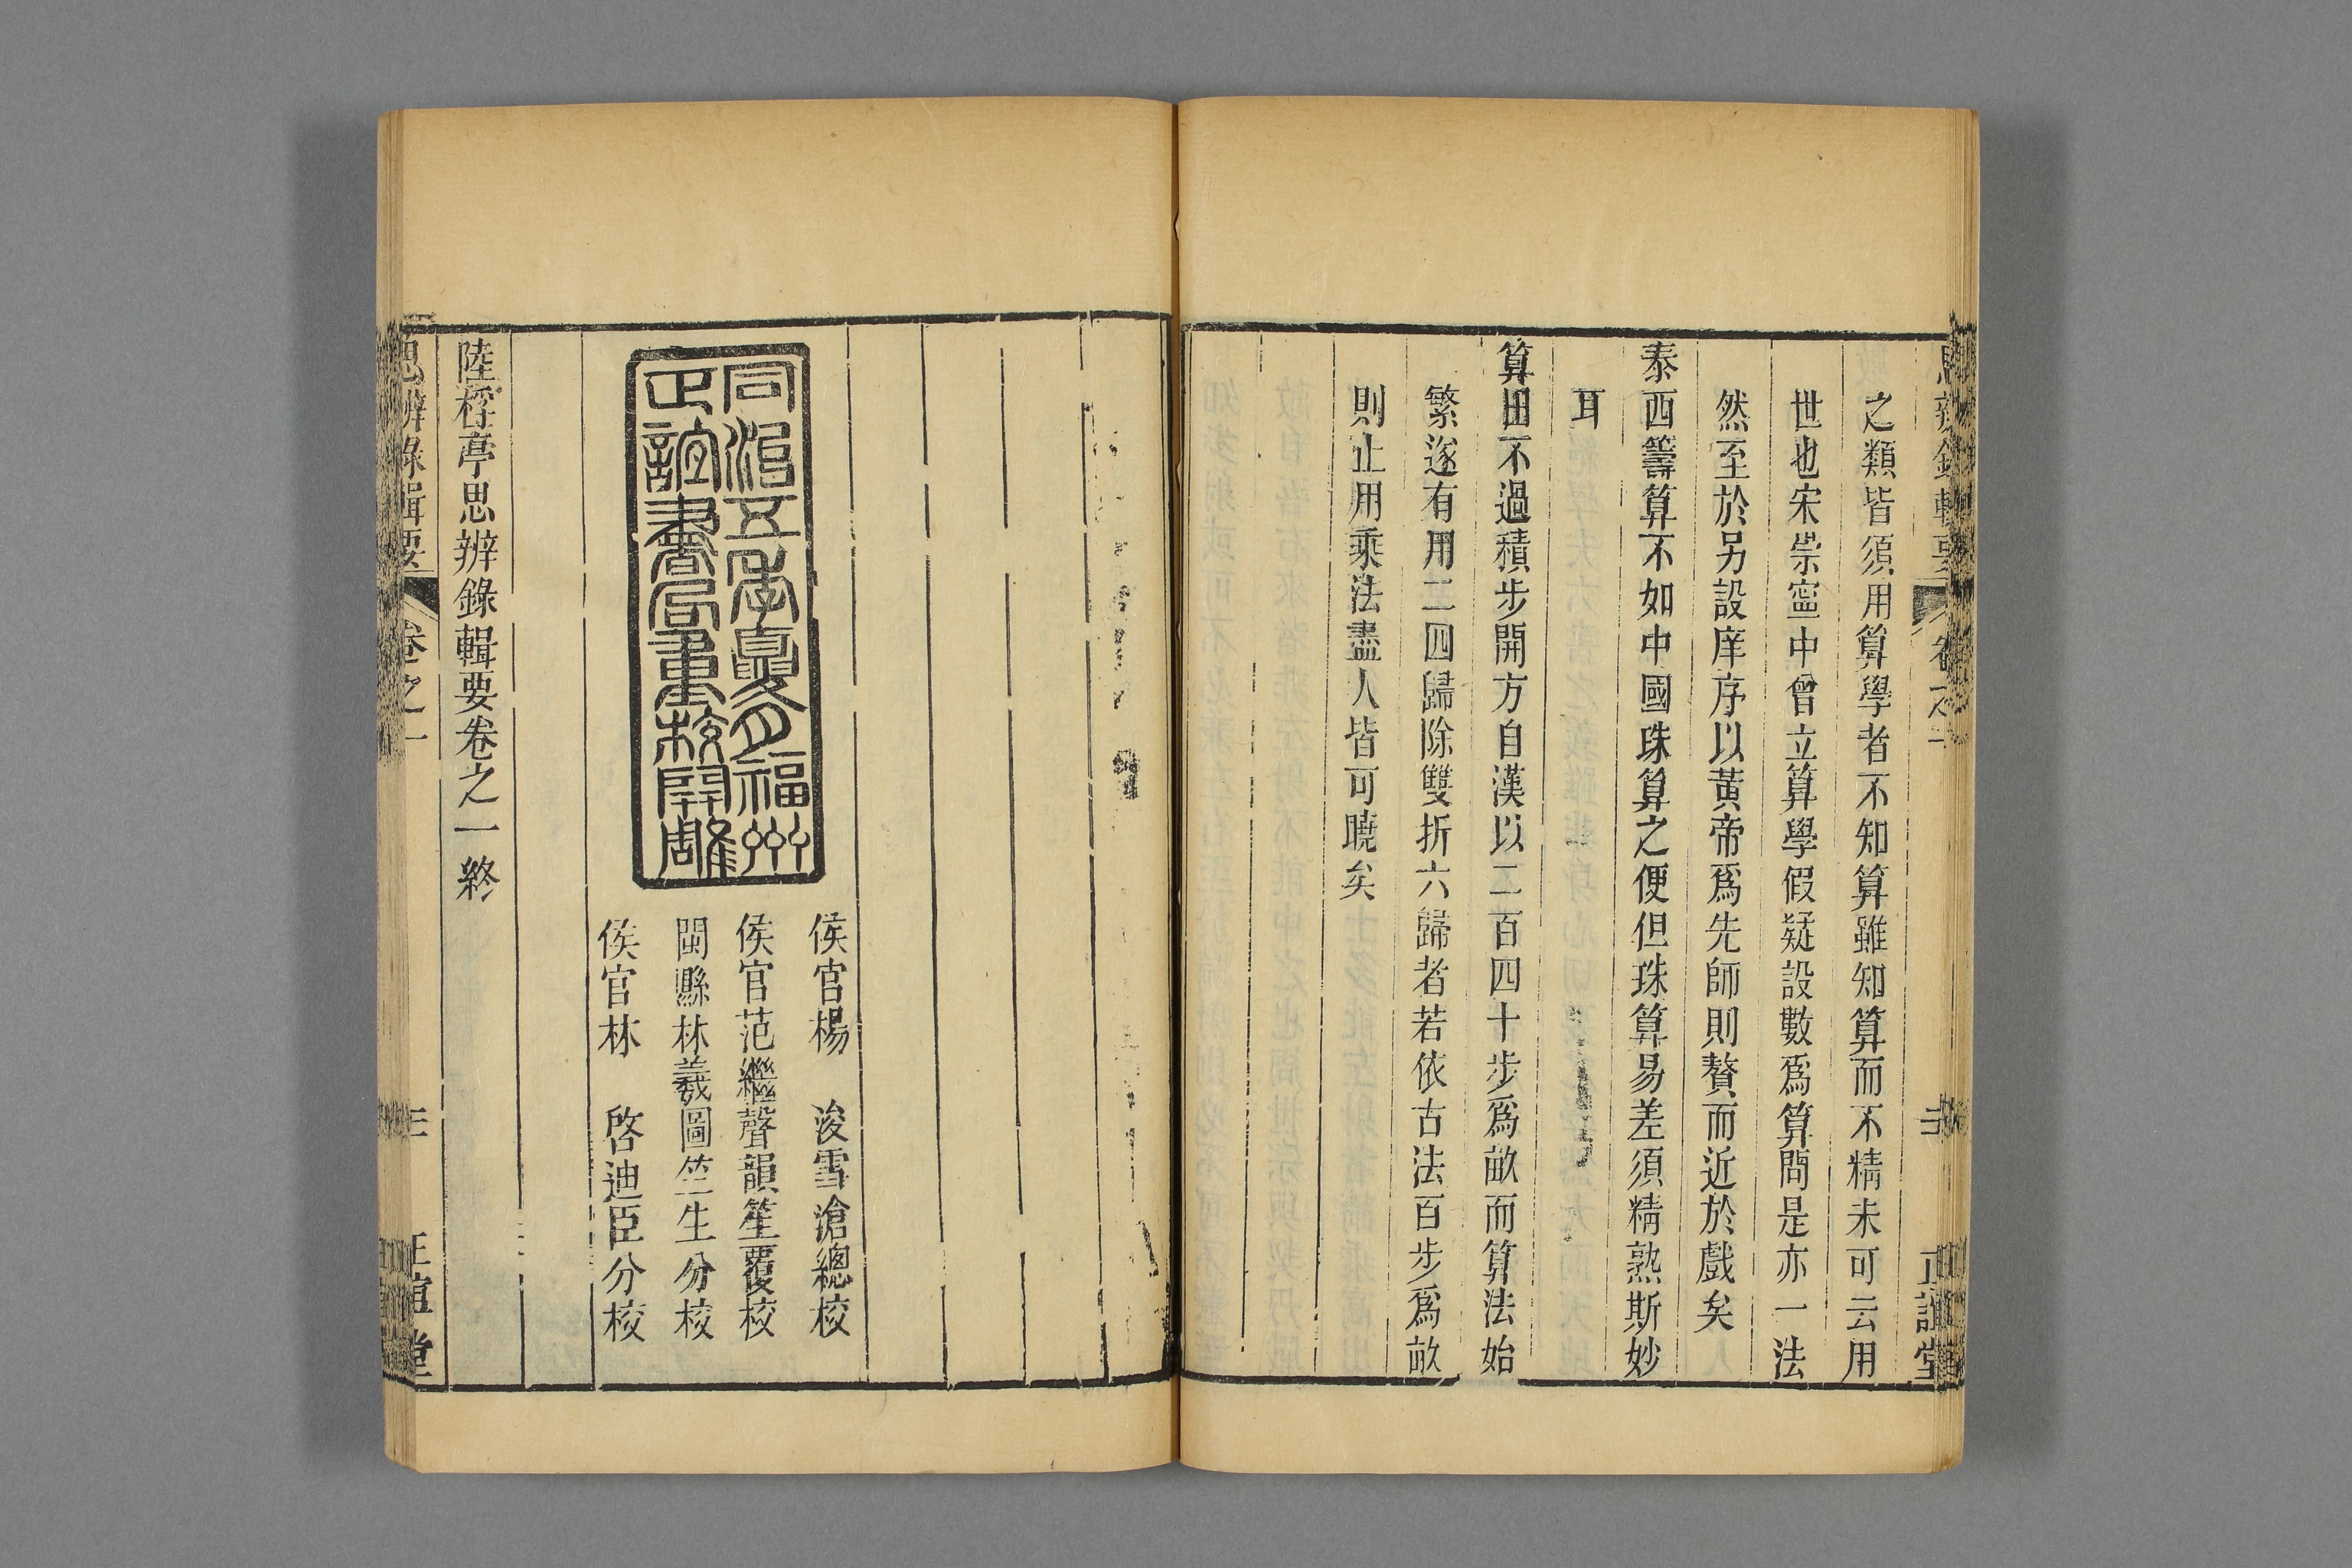 之類皆須用算學者不知算雖知算而不精未可云用
世也宋崇寧中曾立算學假疑設數爲算問是亦一法
然至於另設庠序以黃帝爲先師則贅而近於戲矣
泰西籌算不如中國珠算之便但珠算易差須精熟斯妙
耳
算田不過積步開方自漢以二百四十步爲畝而算法始
繁遂有用二四歸除雙折六歸者若依古法百步爲畝
則止用乘法盡人皆可曉矣
正誼堂
同治五年夏月福州
正誼書局重校開雕
侯官楊 浚雪滄總校
侯官范繼聲韻笙覆校
閩縣林羲圖竺生分校
侯官林 啓迪臣分校
陸桴亭思辨錄輯要卷之一終
思辨錄輯要 卷之一 正誼堂